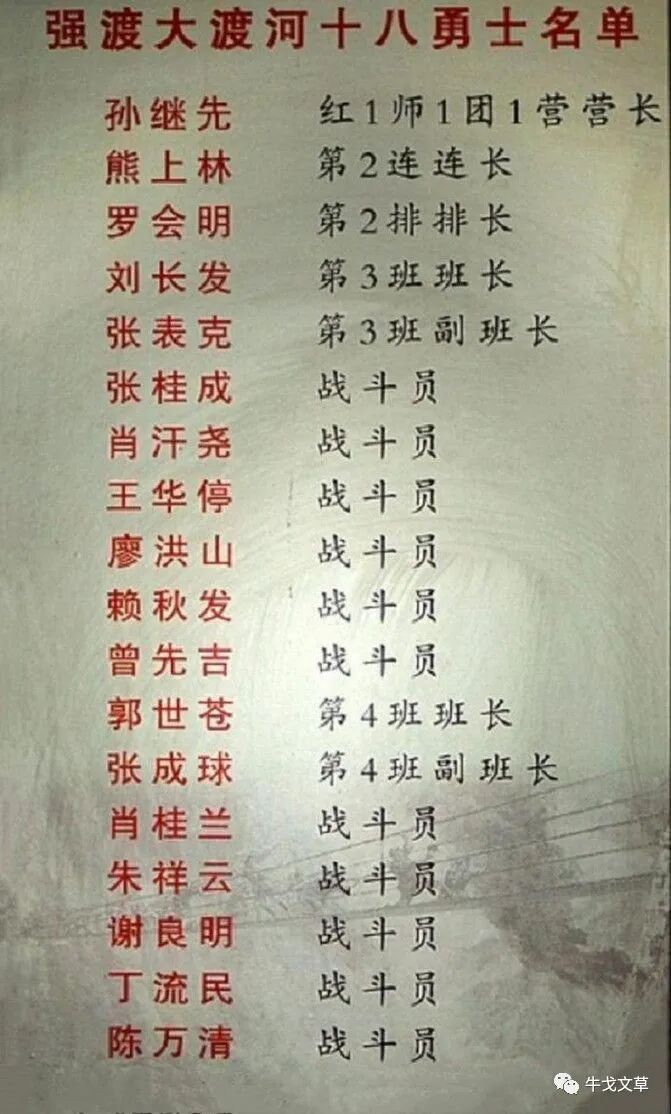 强渡大渡河十八勇士名单
孙继先 红1师1团1营营长
熊上林 第2连连长
罗会明 第2排排长
刘长发 第3班班长
张表克 第3班副班长
张桂成 战斗员
肖汗尧 战斗员
王华停 战斗员
廖洪山 战斗员
赖秋发 战斗员
曾先吉 战斗员
郭世苍 第4班班长
张成球 第4班副班长
肖桂兰 战斗员
朱祥云 战斗员
谢良明 战斗员
丁流民 战斗员
陈万清 战斗员
牛戈文草